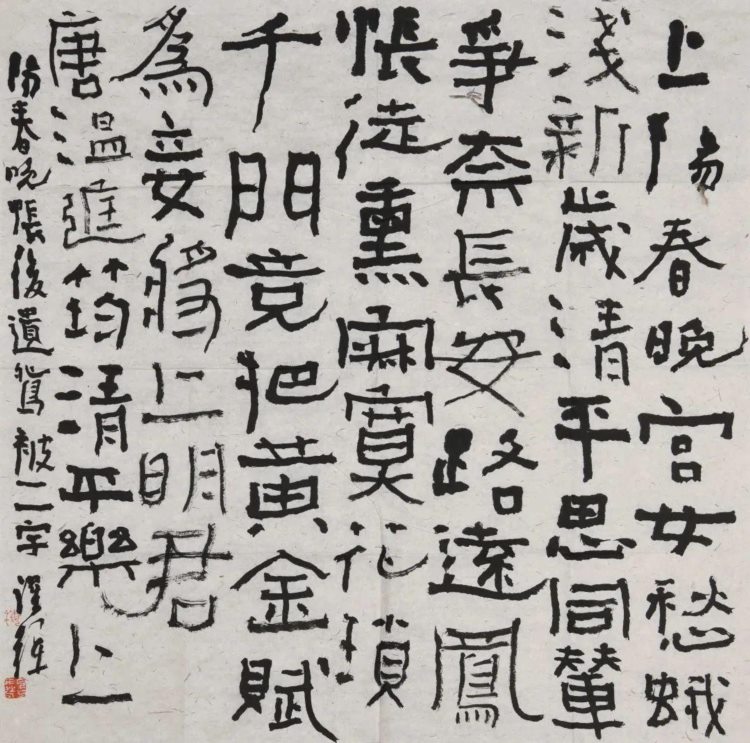 上陽春晚宮女愁蛾
淺新歲清平思同輦
爭奈長安路遠鳳
帳徒熏寂寞花瑣
千門竟把黃金賦
爲妾將上明君
唐温庭筠清平樂上
陽春晚帳後遺鴛被二字